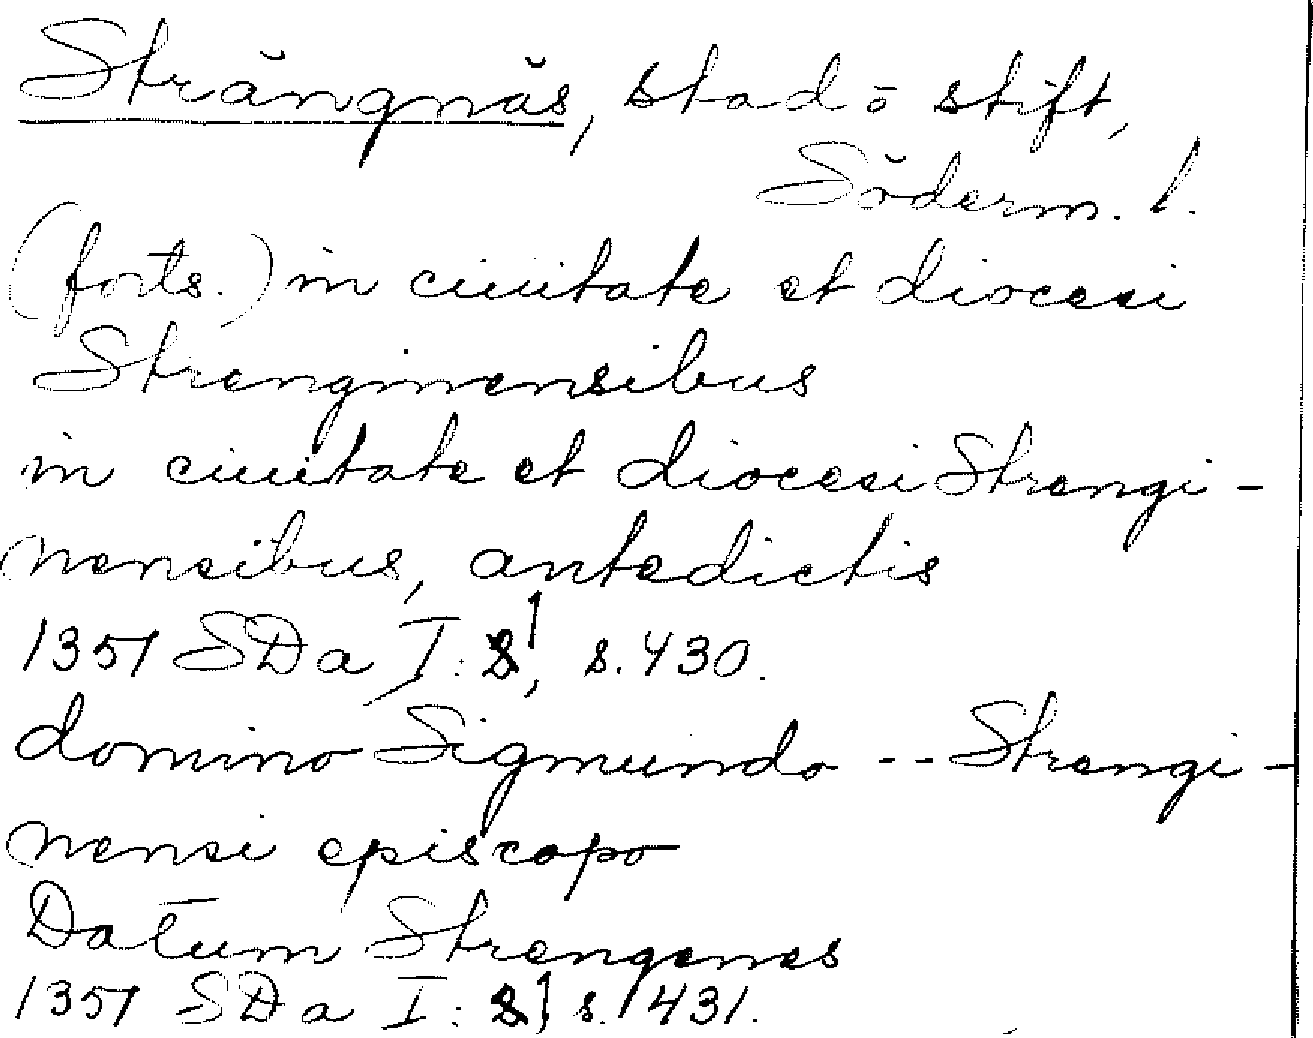 Strängnäs, stad o stift,
Söderm. l.
(forts.) in ciuitate et diocesi
Strenginensibus
in ciuitate et diocesi Strengi-
nensibus, antedictis
1351 SDa I: 1, s. 430.
domino Sigmundo -- Strengi-
nensi episcopo
Datum Strengenes
1351 SDa I: 1 s. 431.